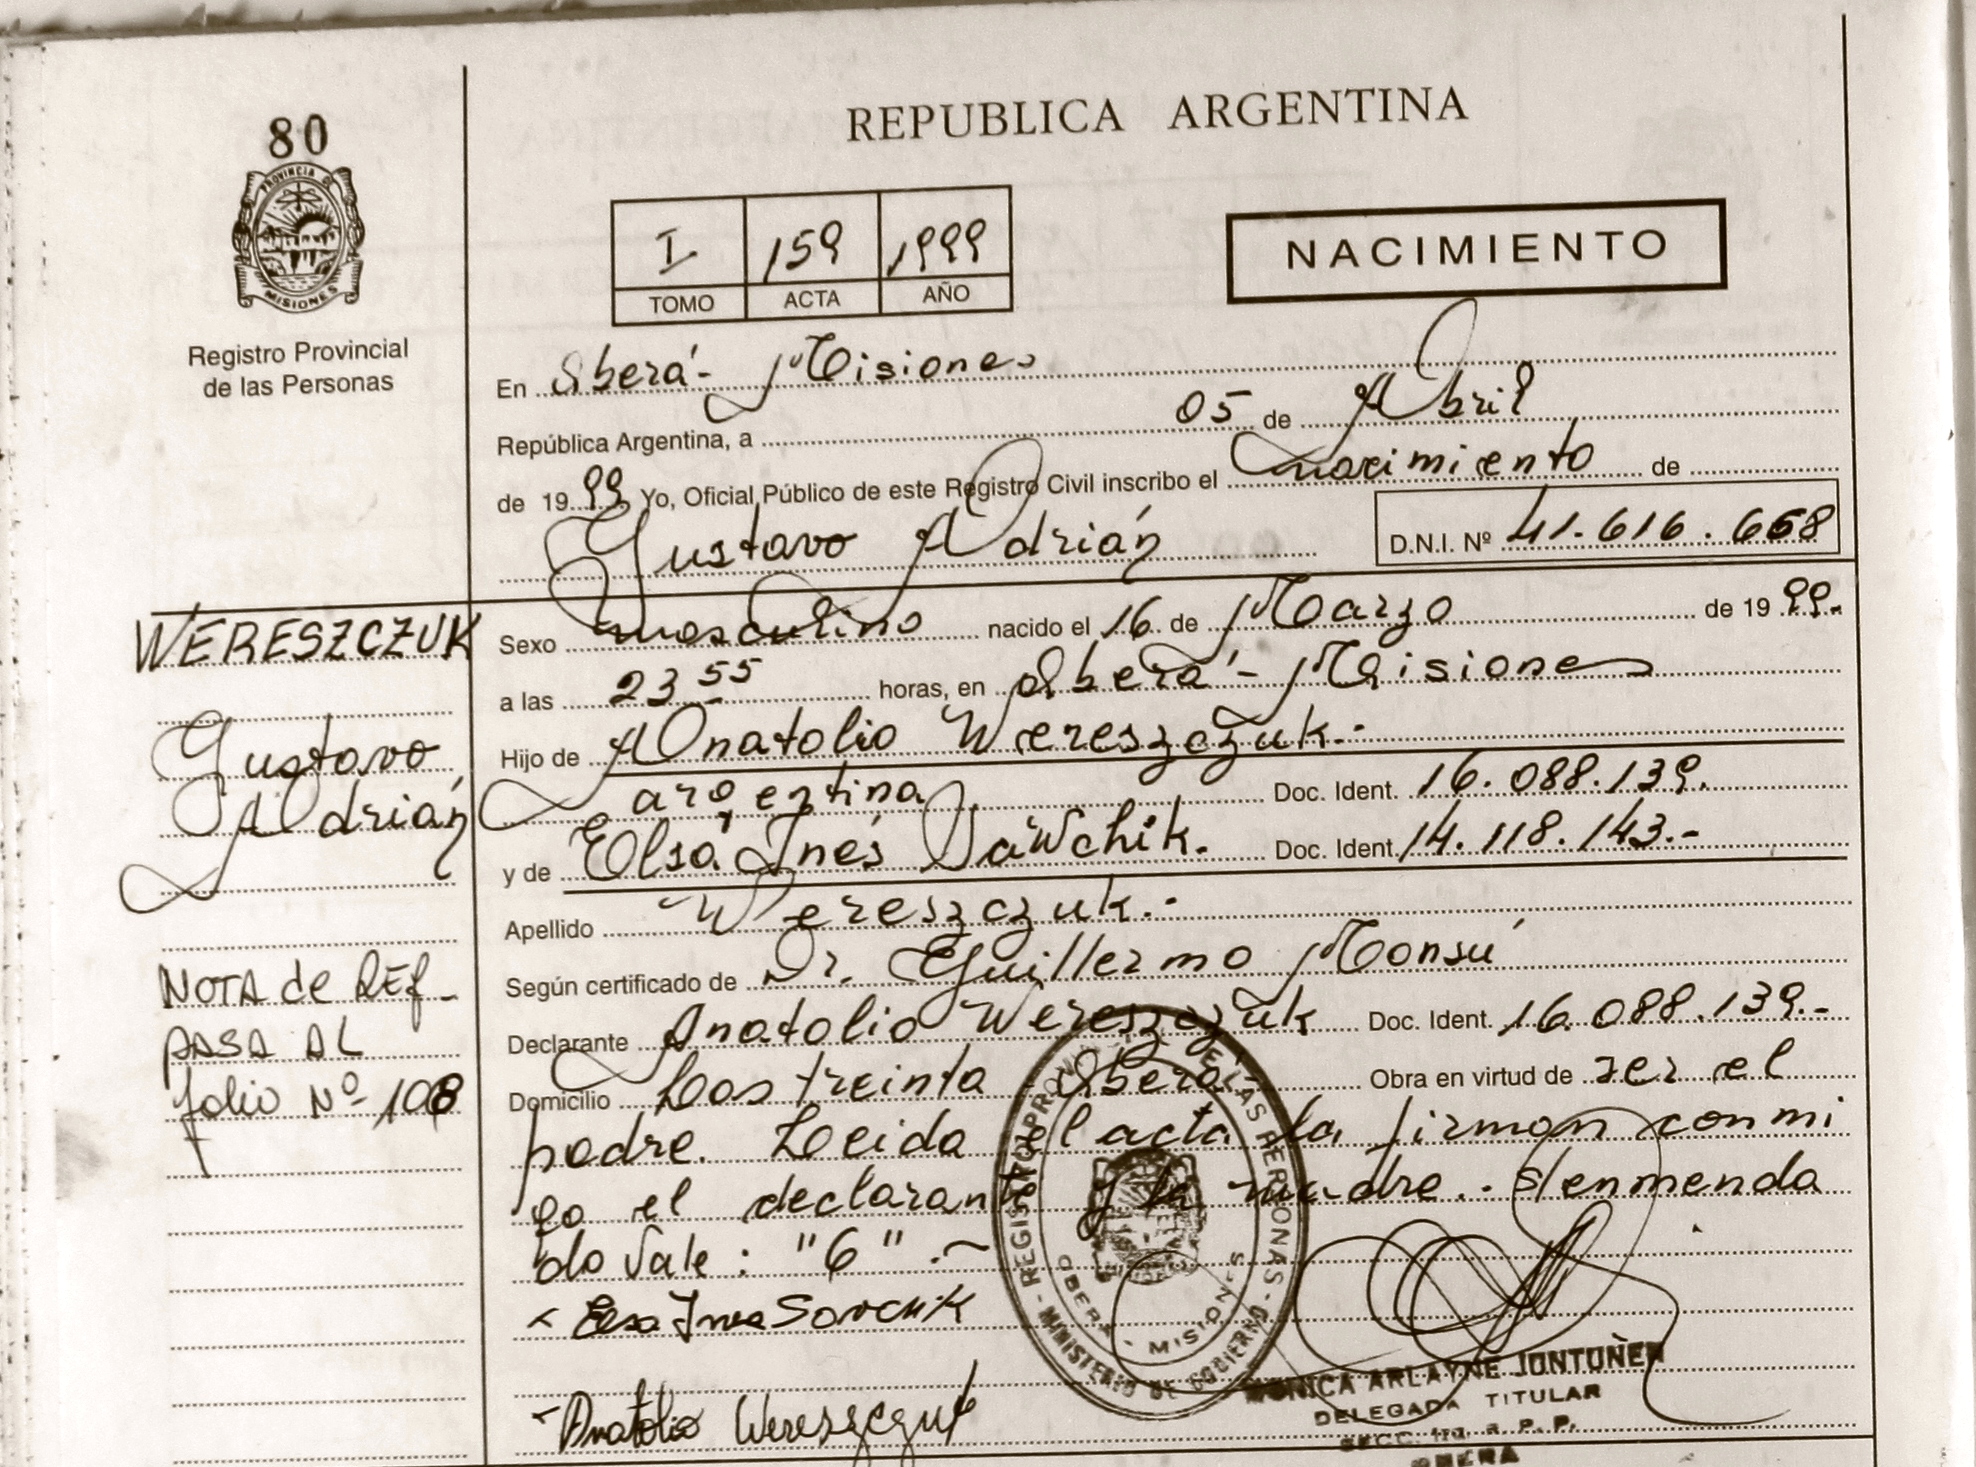 80
PROVINCIA DE
MISIONES
Registro Provincial
de las Personas
REPUBLICA ARGENTINA
I 159 1999
TOMO ACTA AÑO
NACIMIENTO
En Oberá - Misiones
República Argentina, a 05 de Abril
de 1999 Yo, Oficial Público de este Registro Civil inscribo el nacimiento de
Gustavo Adrián D.N.I. Nº 41.616.668
WERESZCZUK
Gustavo
Adrián
NOTA de REF_
PASA AL
folio Nº 108
Sexo masculino nacido el 16 de Marzo de 1999.-
a las 23 55 horas, en Oberá - Misiones
Hijo de Anatolio Wereszczuk.-
argentina Doc. Ident. 16.088.139.
y de Elsa Inés Sawchik. Doc. Ident. 14.118.143.-
Apellido Wereszczuk.-
Según certificado de Dr. Guillermo Monsú
Declarante Anatolio Wereszczuk Doc. Ident. 16.088.139.-
Domicilio Los treinta Oberá- Obra en virtud de ser el
padre. Leida el acta la firman conmi
go el declarante y la madre.- S/enmenda
do Vale: "6".-
Elsa Ines Savchik
Anatolio Wereszczuk
REGISTRO PROV DE LAS PERSONAS - MINISTERIO DE GOBIERNO -
OBERA - MISIONES
MONICA ARLAYNE JONTUÑEN
DELEGADA TITULAR
SECC. 1ra. R. P. P.
OBERA